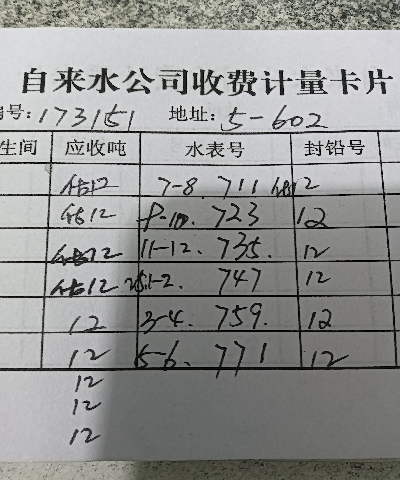 自来水公司收费计量卡片
编号:173151 地址:5-602
生间 应收吨 水表号 封铅号
估12 7-8. 711 估12
估12 9-10. 723 12
估12 11-12. 735. 12
估12 25.1-2. 747 12
12 3-4. 759. 12
12 5-6. 771 12
12
12
12